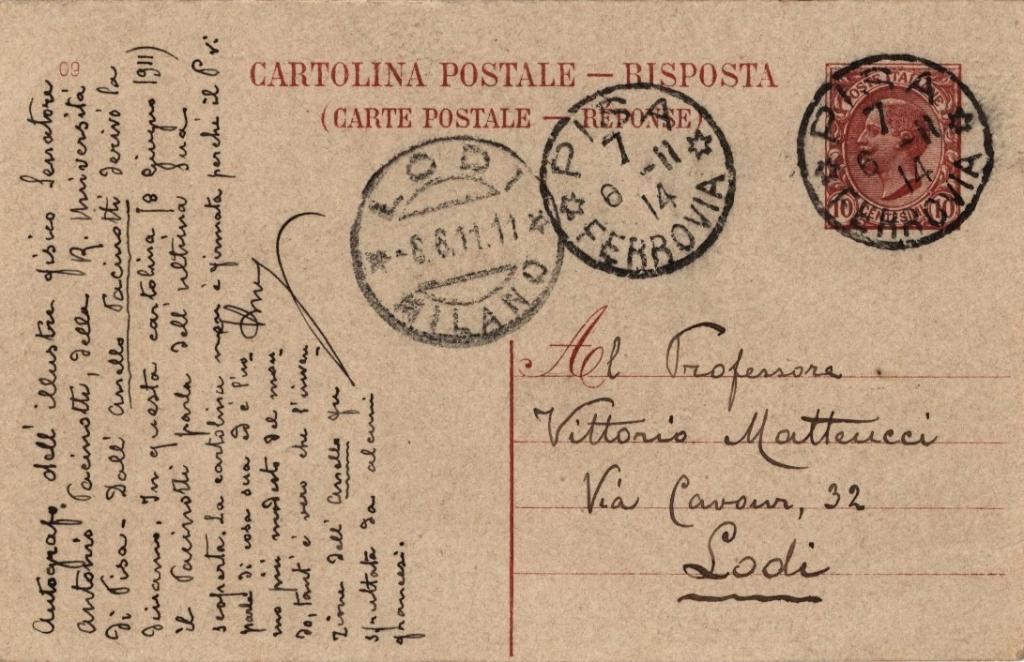 09
CARTOLINA POSTALE — RISPOSTA
(CARTE POSTALE — RÉPONSE)
LODI
-8.6.11.11
MILANO
PISA
7
6 -11
14
FERROVIA
PISA
7
6 -11
14
FERROVIA
POSTE ITALIANE
10 CENTESIMI 10
Al Professore
Vittorio Matteucci
Via Cavour, 32
Lodi
Autografo dell'illustre fisico Senatore
Antonio Pacinotti, della R. Università
di Pisa - Dall' Anello Pacinotti derivò la
dinamo. In questa cartolina (8 giugno 1911)
il Pacinotti parla dell'ultima sua
scoperta. La cartolina non è firmata perché il P.
parla di cosa sua ed è l'uo
mo più modesto del mon
do, tant'è vero che l'inven
zione dell' Anello fu
sfruttata da alcuni
francesi.